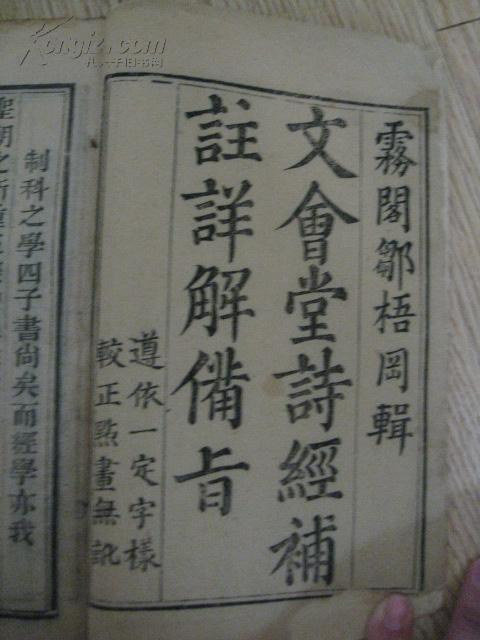 霧閣鄒梧岡輯
文會堂詩經補
註詳解備旨
遵依一定字樣
較正點畫無訛
制科之學四子書尚矣而經學亦我
Kongfz.com
孔夫子旧书网